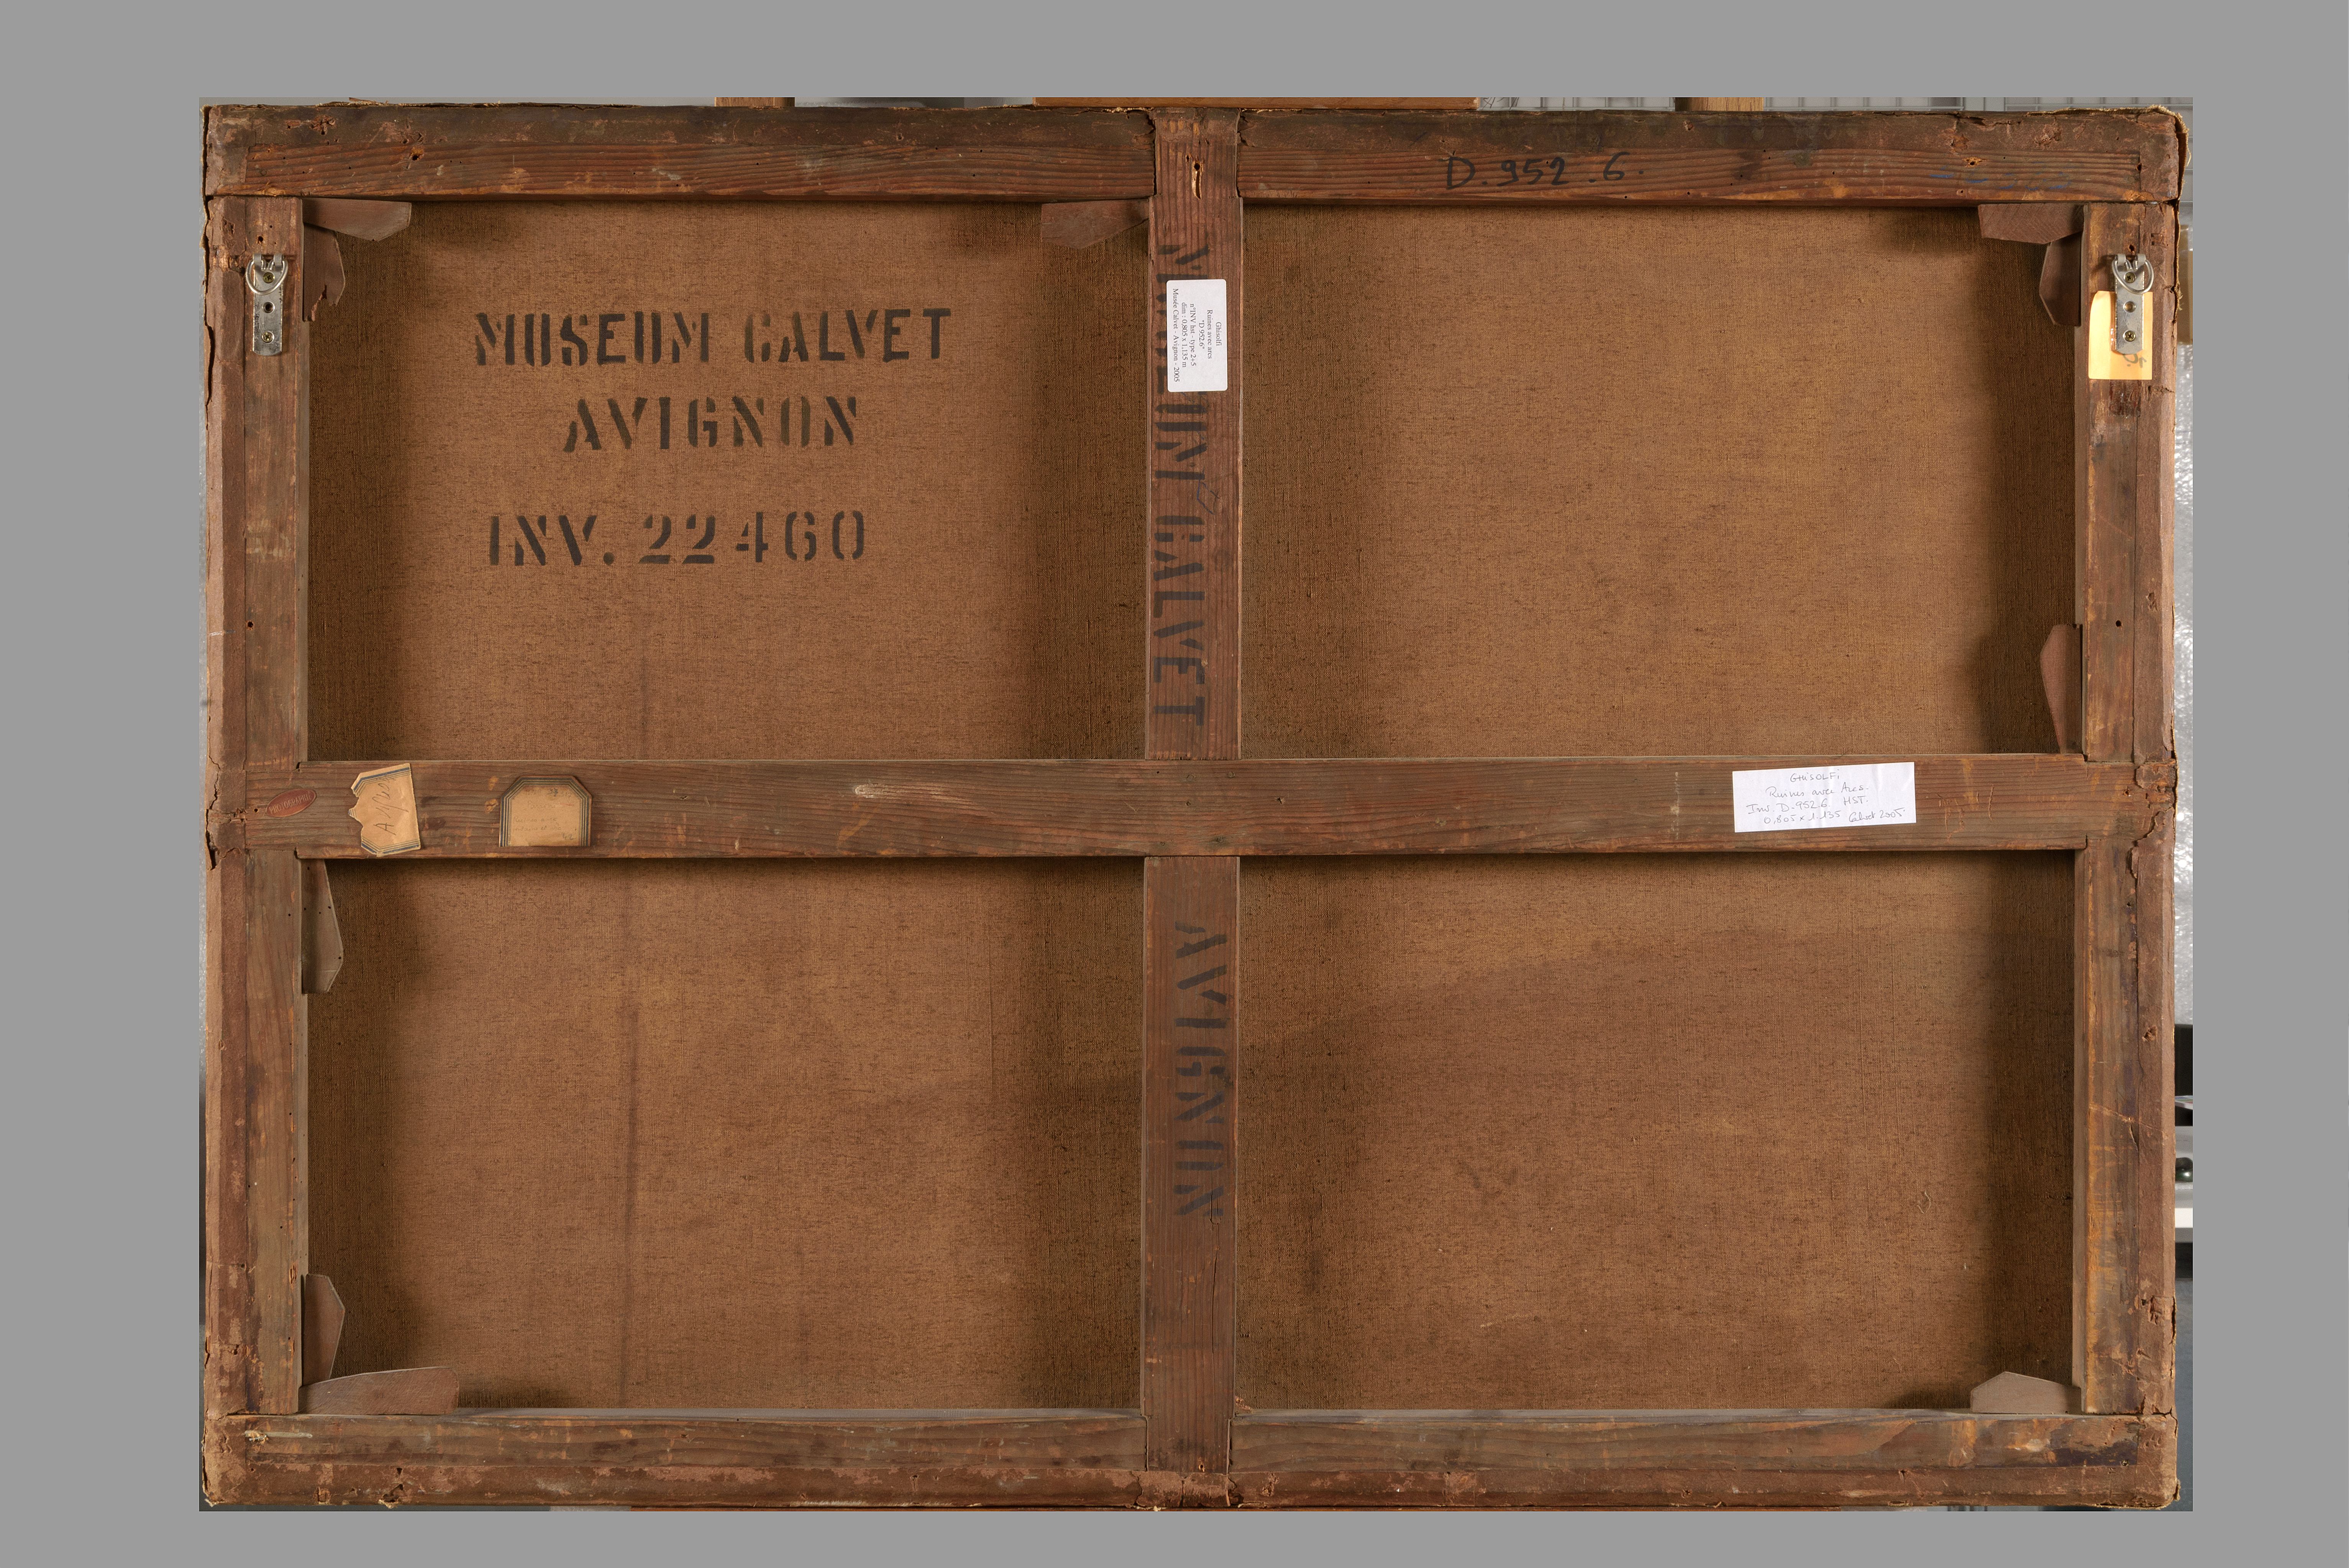 D.952.6.
MUSEUM CALVET
AVIGNON
INV. 22460
Ghisolfi
Ruines avec arcs
"D 952.6"
n°INV hst - type 2+5
dim : 0.805 x 1.135 m
Musée Calvet - Avignon - 2005
CALVET
AVIGNON
GHISOLFI
Ruines avec Arcs.
Inv. D.952.6 HST.
0,805 x 1.135 Calvet 2005